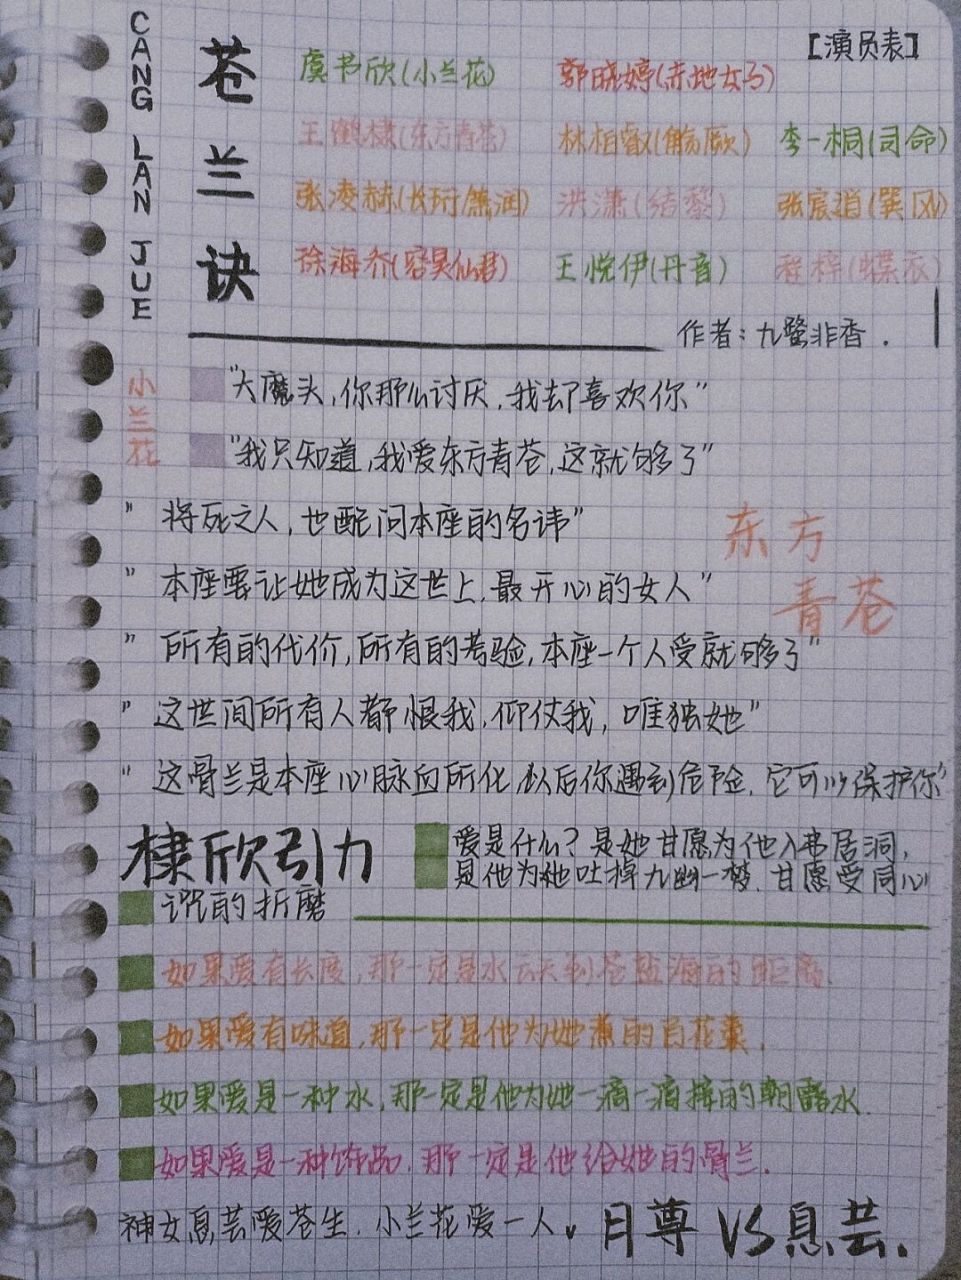 CANG LAN JUE
苍兰诀
[演员表]
虞书欣(小兰花) 郭晓婷(赤地女子)
王鹤棣(东方青苍) 林柏叡(觞阙) 李一桐(司命)
张凌赫(长珩/萧润) 洪潇(结黎) 张宸逍(巽风)
徐海乔(容昊仙君) 王悦伊(丹音) 程梓(蝶衣)
作者:九鹭非香.
小兰花
"大魔头,你那么讨厌,我却喜欢你"
"我只知道,我爱东方青苍,这就够了"
东方青苍
"将死之人,也配问本座的名讳"
"本座要让她成为这世上,最开心的女人"
"所有的代价,所有的考验,本座一个人受就够了"
"这世间所有人都恨我,仰仗我,唯独她"
"这骨兰是本座心脉血所化,以后你遇到危险,它可以保护你"
棣欣引力
爱是什么?是她甘愿为他入弗居洞,
是他为她吐掉九幽一梦,甘愿受同心
咒的折磨
如果爱有长度,那一定是水云天到苍盐海的距离.
如果爱有味道,那一定是他为她煮的百花羹.
如果爱是一种水,那一定是他为她一滴一滴接的朝露水.
如果爱是一种饰品,那一定是他给她的骨兰.
神女息芸爱苍生.小兰花爱一人.
月尊VS息芸.